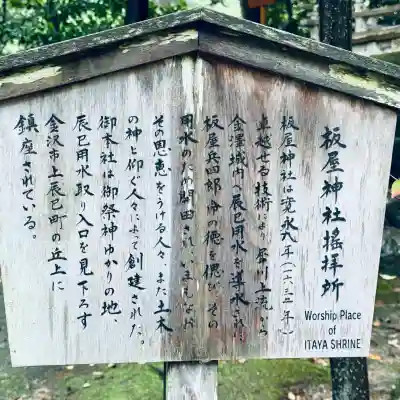 板屋神社遙拝所
Worship Place
of
ITAYA SHRINE
板屋神社は寛永九年(一六三二年)
卓越せる技術により犀川上流から
金澤城内へ辰巳用水を導水され
板屋兵四郎命の徳を偲び、その
用水のため開田され、いまもなお
その恩恵をうける人々、また土木
の神と仰ぐ人々によって創建された。
御本社は御祭神ゆかりの地、
辰巳用水取り入口を見下ろす
金沢市上辰巳町の丘上に
鎮座されている。